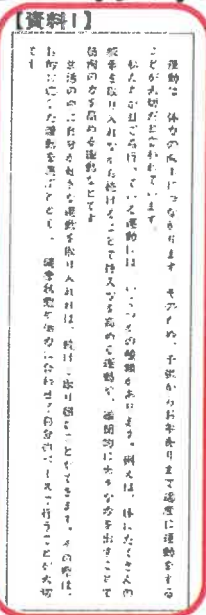 【資料1】
運動は、体力の向上につながります。そのため、子供からお年寄りまで適度に運動をする
ことが大切だといわれています。
私たちがふだん行っている運動には、いくつかの種類があります。例えば、体にたくさんの
酸素を取り入れながら続けることで持久力を高める運動や、瞬間的に大きな力を出すことで
筋肉の力を高める運動などです。
生活の中に自分が好きな運動を取り入れれば、続けて取り組むことができます。その際は、
目的に応じた運動を選ぶとともに、健康状態や体力に合わせて自分のペースで行うことが大切
です。